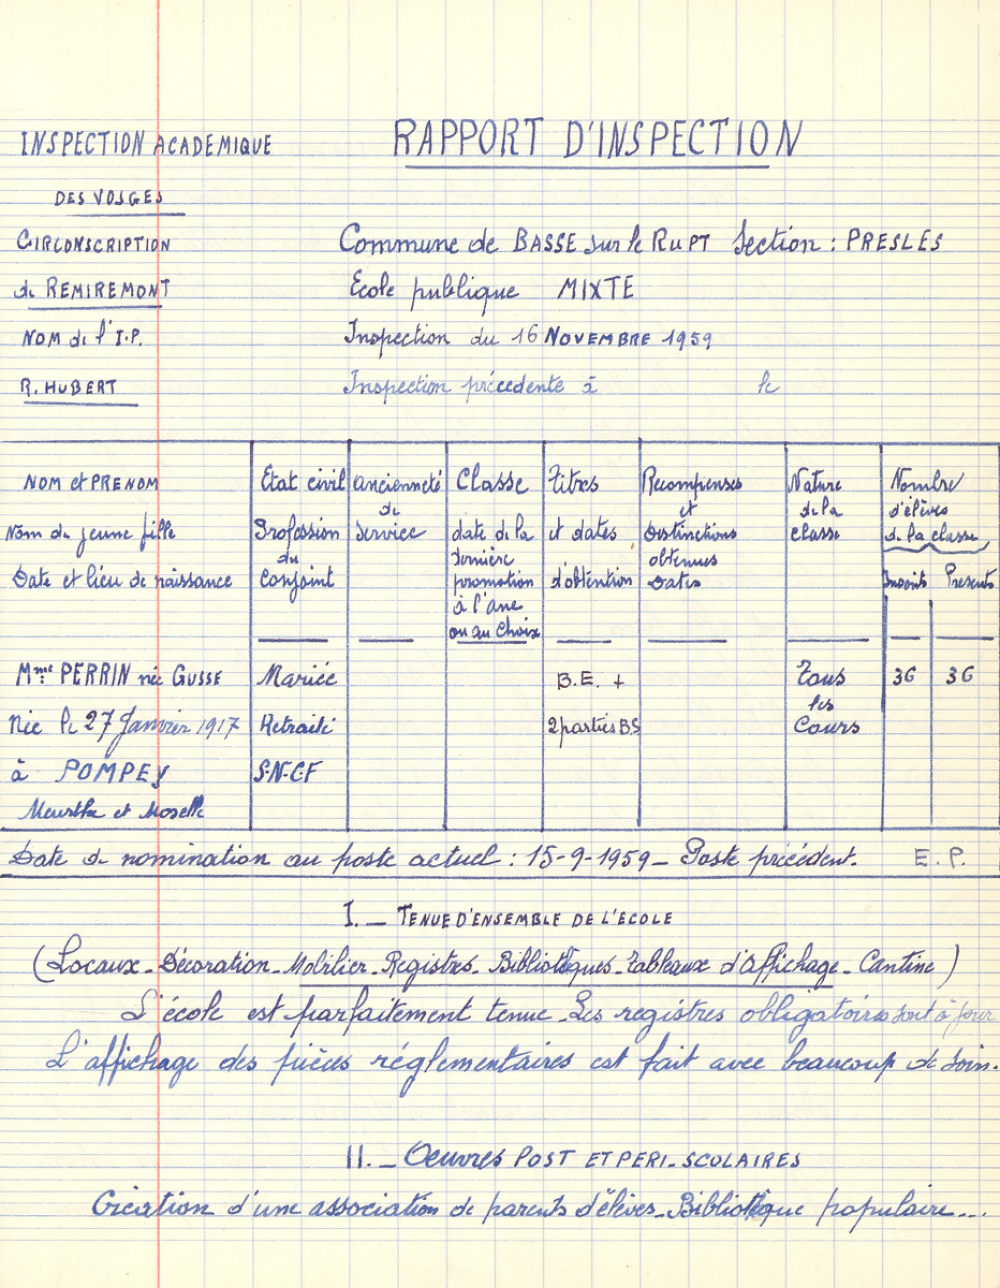 INSPECTION ACADEMIQUE
DES VOSGES
CIRCONSCRIPTION
de REMIREMONT
NOM de l'I.P.
R. HUBERT
RAPPORT D'INSPECTION
Commune de BASSE sur le RUPT Section : PRESLES
Ecole publique MIXTE
Inspection du 16 NOVEMBRE 1959
Inspection précedente à le
NOM et PRENOM
Nom de jeune fille
Date et lieu de naissance
Etat civil
Profession
du
conjoint
ancienneté
de
Service
Classe
date de la
dernière
promotion
à l'anc
ou au choix
Titres
et dates
d'obtention
Recompenses
et
Distinctions
obtenues
Dates
Nature
de la
classe
Nombre
d'élèves
de la classe
Inscrits Presents
Mme PERRIN née GUSSE
Née le 27 Janvier 1917
à POMPEY
Meurthe et Moselle
Mariée
Retraité
S.N.C.F
B.E. +
2 parties B.S
Tous
les
Cours
36 36
Date de nomination au poste actuel : 15-9-1959 - Poste précédent. E.P.
I. _ TENUE D'ENSEMBLE DE L'ECOLE
(Locaux - Décoration - Mobilier - Registres - Bibliothèques - Tableaux d'Affichage - Cantine)
L'école est parfaitement tenue - Les registres obligatoires sont à jour
L'affichage des pièces réglementaires est fait avec beaucoup de soin.
II. _ Oeuvres POST ET PERI-SCOLAIRES
Création d'une association de parents d'élèves - Bibliothèque populaire...